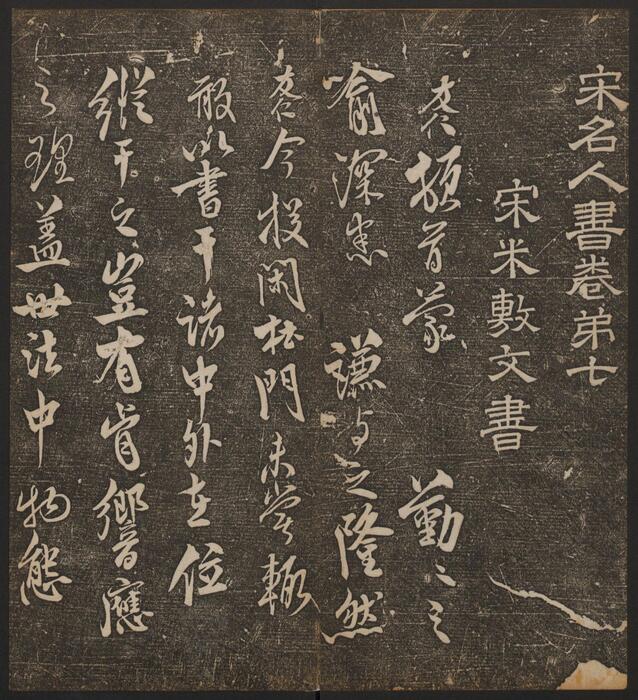 宋名人書卷弟七
宋米敷文書
頓首蒙 勤〻之
喻深悉 謙与之隆然
今投閑杜門未嘗輒
敢以書干諸中外在位
縱干之豈有肯響應
之理蓋世法中物態